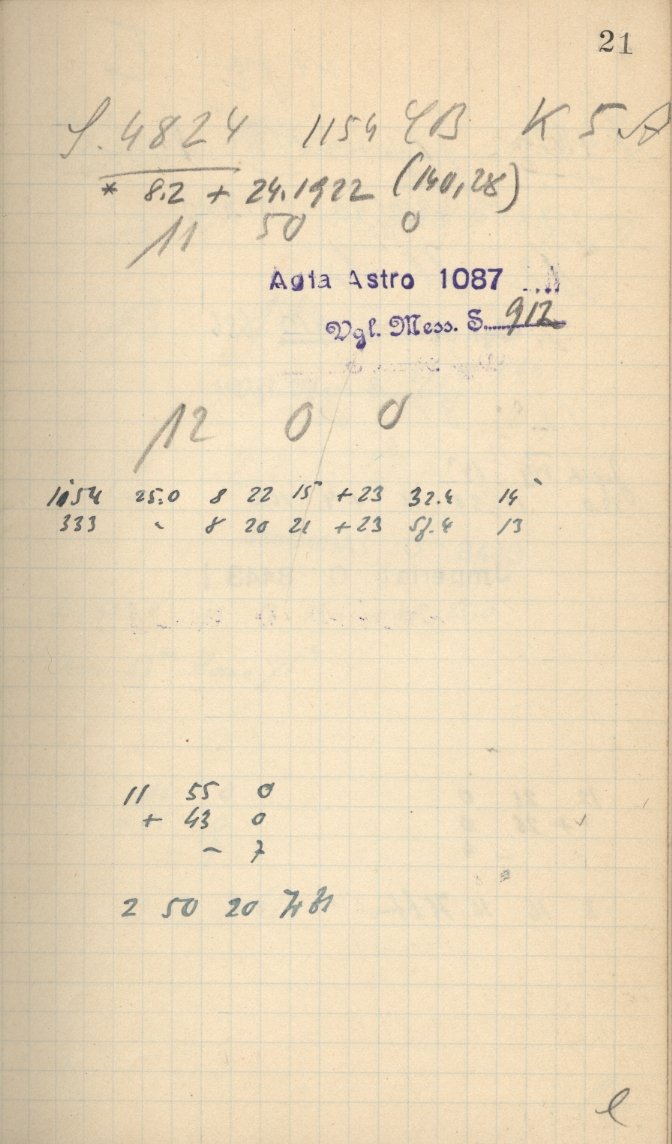 21
S. 4824 1154 K 5 A
* 8.2 + 24.1922 (140,28)
11 50 0
Agfa Astro 1087
Vgl. Mess. S. 912
12 0 0
1054 25.0 8 22 15 +23 32.4 14
333 ~ 8 20 21 +23 51.4 13
11 55 0
+ 43 0
~ 7
2 50 20